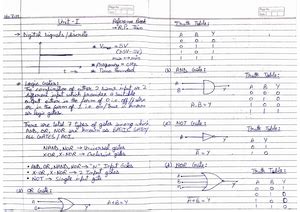 Unit - I
Reference Book
→ R.P. Jain
→ Digital Signals / Discrete
* Vmax = 5V
* Frequency =
* Time
* Logic Gates:
The combination of either 2 same input or 2
different input which provides a suitable
output either in the form of 0 i.e. off / false
or in the form of 1 i.e. on / true
as logic gates.
There are total 7 types of gates among which
AND, OR, NOR are known as BASIC
ALL GATES /
NAND, NOR → Universal gates
XOR, X-NOR → Exclusive gates
• AND, OR, NAND, NOR → "N" Input Gates
• X-OR, X-NOR → 2 Input gates
• NOT → Single input gate
(a) OR Gate:
A
B
Y
A+B = Y
Truth Table:
A B Y
0 0 0
0 1 1
1 0 1
1 1 1
(b) AND Gate:
A
B
Y
A.B = Y
Truth Table:
A B Y
0 0 0
0 1 0
1 0 0
1 1 1
(c) NOT Gate:
A
Truth Table:
A Y
0 1
1 0
(d) NOR Gate:
A
B
Y
A+B = Y
Truth Table:
A B Y
0 0 1
0 1 0
1 0 0
1 1 0